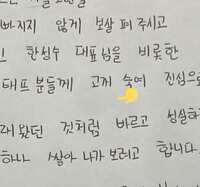 빠지지 않게 보살펴 주시고
한성수 대표님을 비롯한
분들께 고개 숙여 진심으로
왔던 것처럼 바르고 성실하
하나 쌓아 나가 보려고 합니다.